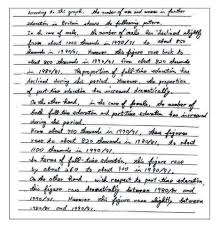 According to this graph, the number of men and women in further
education in Britain shows the following pattern.
In the case of male, the number of male has declined slightly
from about 1000 thousands in 1970/71 to about 850
thousands in 1990/91. However, this figure rose back to
about 850 thousands in 1990/91 from about 820 thousands
in 1980/81. The proportion of full-time education has
declined during this period. However, the proportion
of part-time education has increased dramatically.
On the other hand, in the case of female, the number of
both full-time education and part-time education has increased
during the period.
From about 700 thousands in 1970/71, these figures
rose to about 820 thousands in 1980/81, to about
1100 thousands in 1990/91.
In terms of full-time education, this figure rose
by about 260 to about 900 in 1990/91.
On the other hand, with respect to part-time education,
this figure rose dramatically between 1980/81 and
1990/91. However this figure rose slightly between
1980/81 and 1990/91.